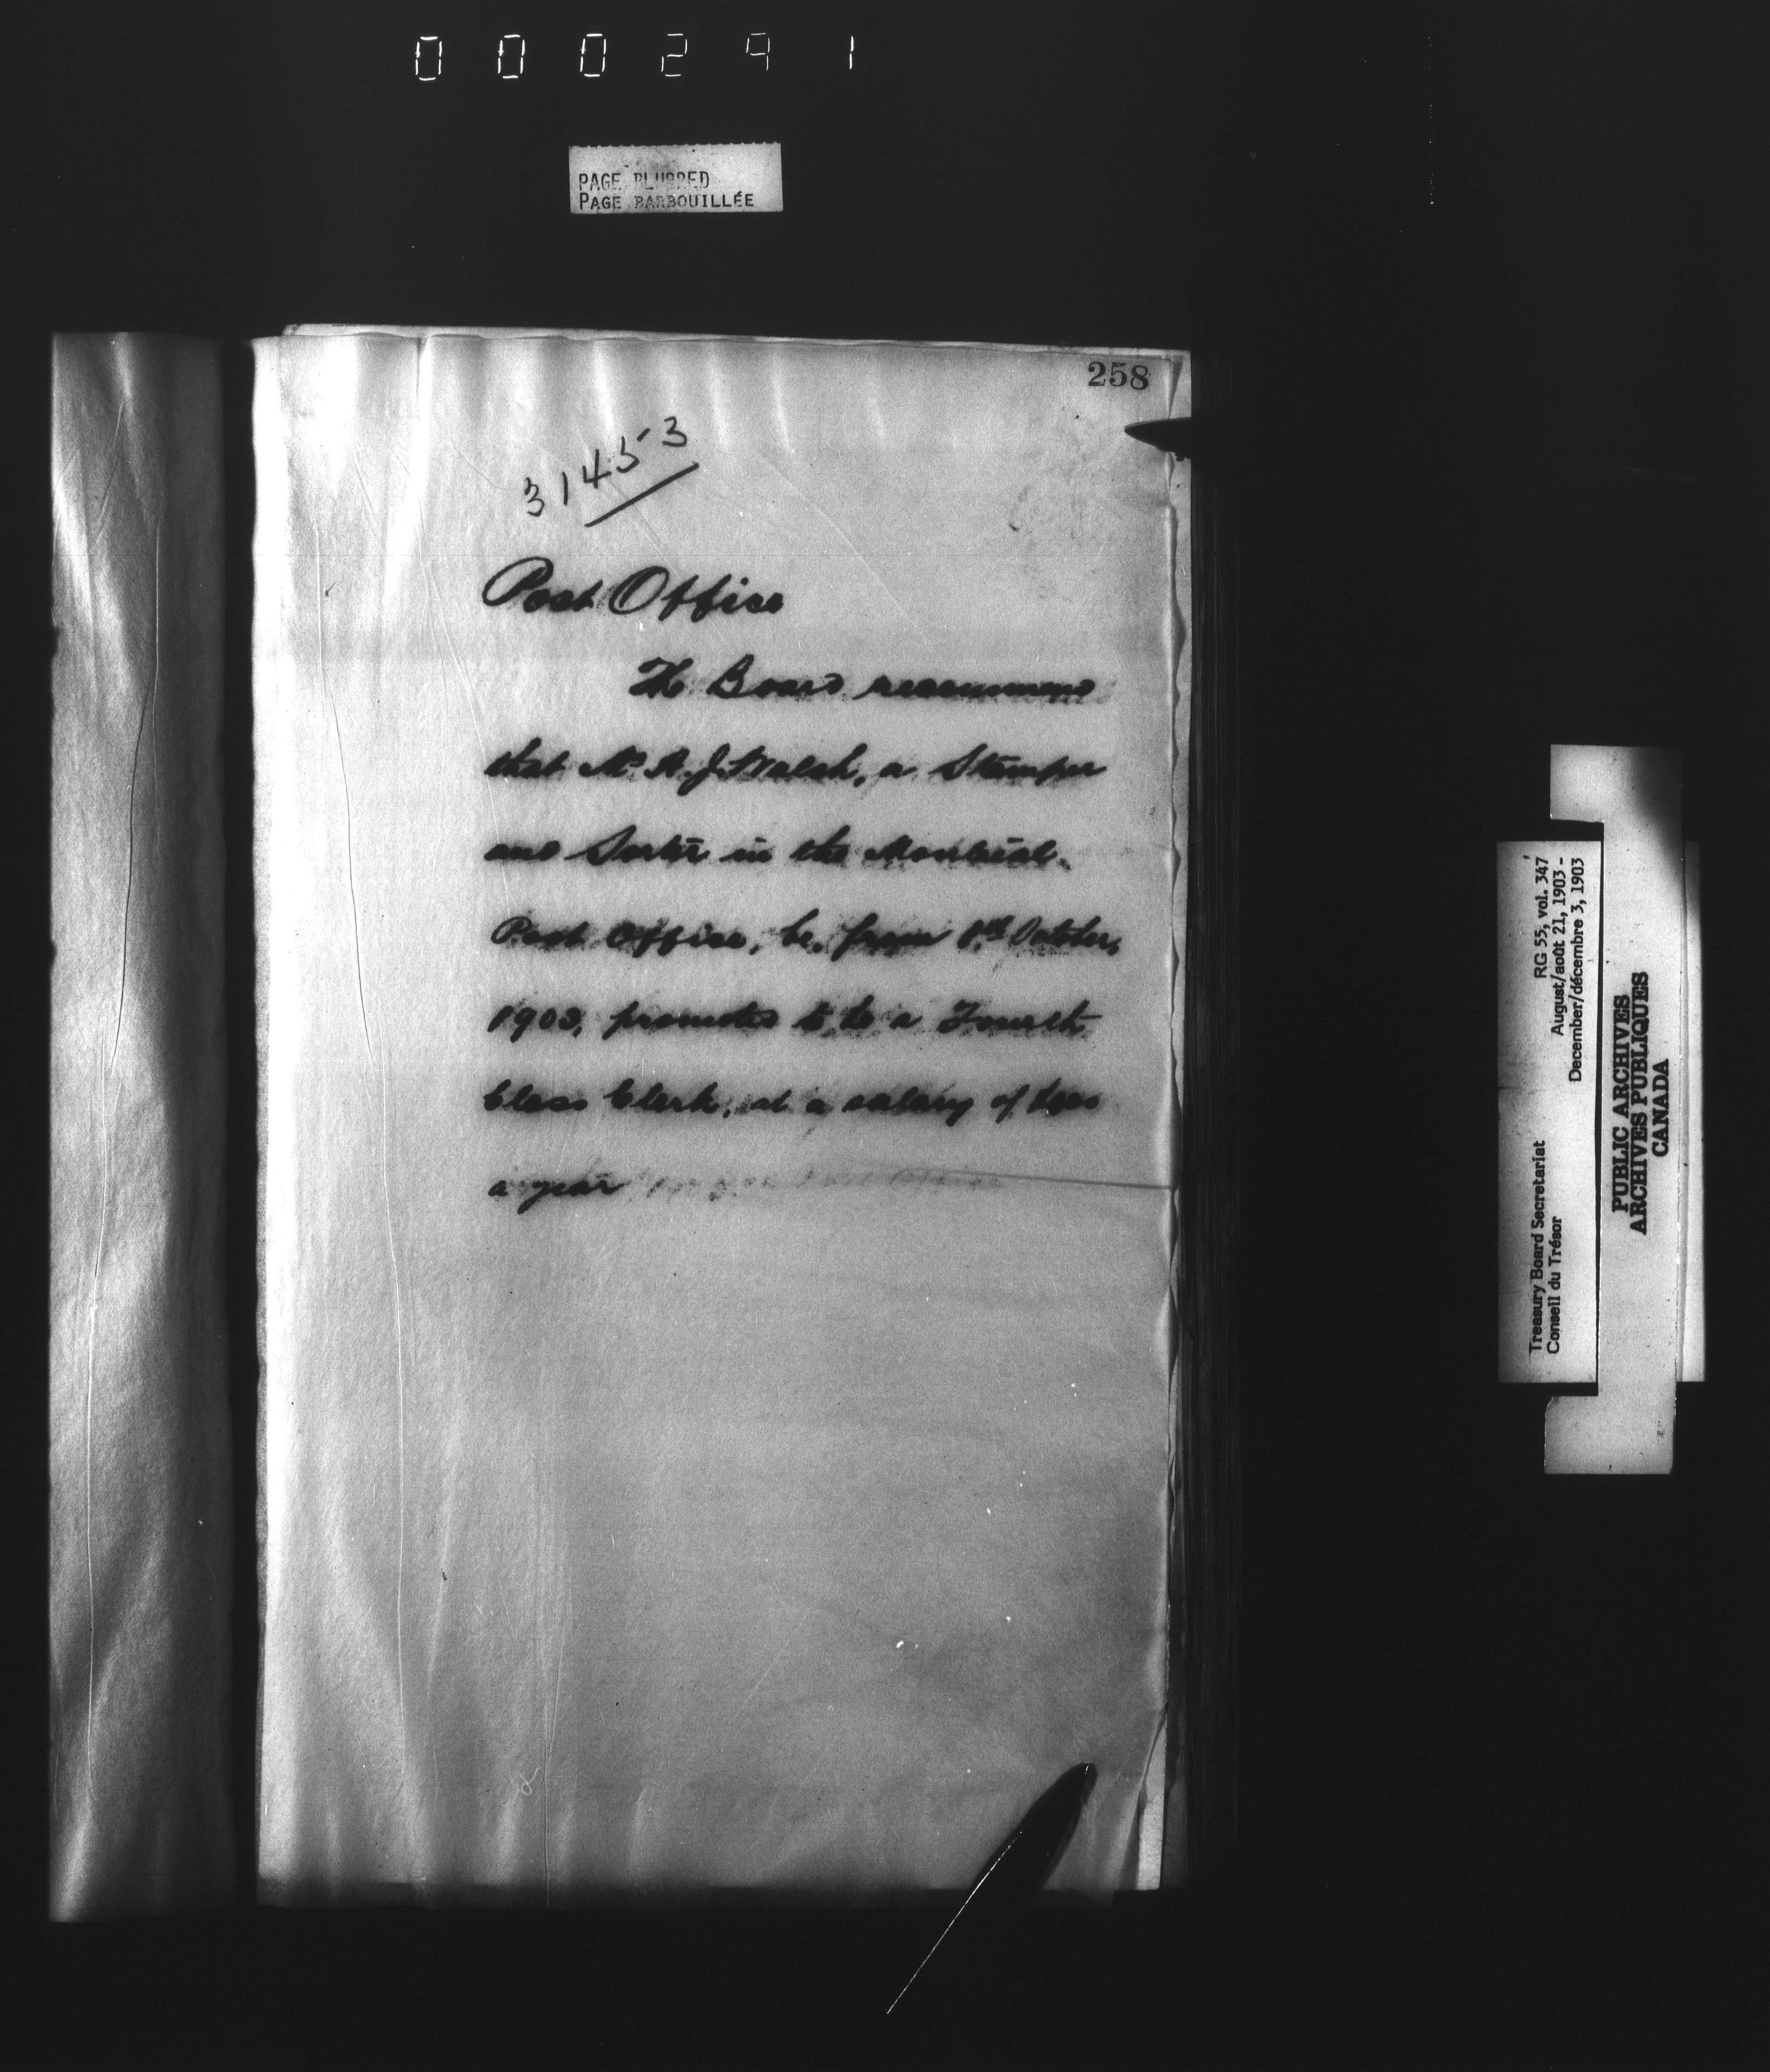 000291
PAGE BLURRED
PAGE BARBOUILLÉE
258
31453
Post Office
The Board recommend
that Mr A. J. Walsh, a Stamper
and Sorter in the Montreal
Post Office, be, from 1st October,
1903, promoted to be a Fourth
Class Clerk, at a salary of
a year
RG 55, vol. 347
August/août 21, 1903 -
December/décembre 3, 1903
Treasury Board Secretariat
Conseil du Trésor
PUBLIC ARCHIVES
ARCHIVES PUBLIQUES
CANADA